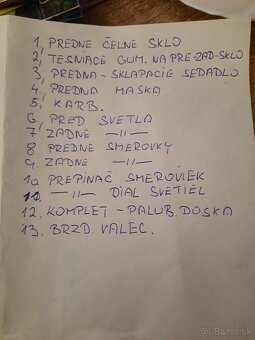 1, PREDNE ČELNE SKLO
2, TESNIACE GUM. NA PRE-ZAD-SKLO
3, PREDNA - SKLAPACIE SEDADLO
4, PREDNA MASKA
5, KARB.
6, PRED SVETLA
7, ZADNE —11—
8 PREDNE SMEROVKY
9. ZADNE —11—
10 PREPINAČ SMEROVIEK
11. —11— DIAL. SVETIEL
12. KOMPLET - PALUB. DOSKA
13. BRZD. VALEC.
bazos.sk